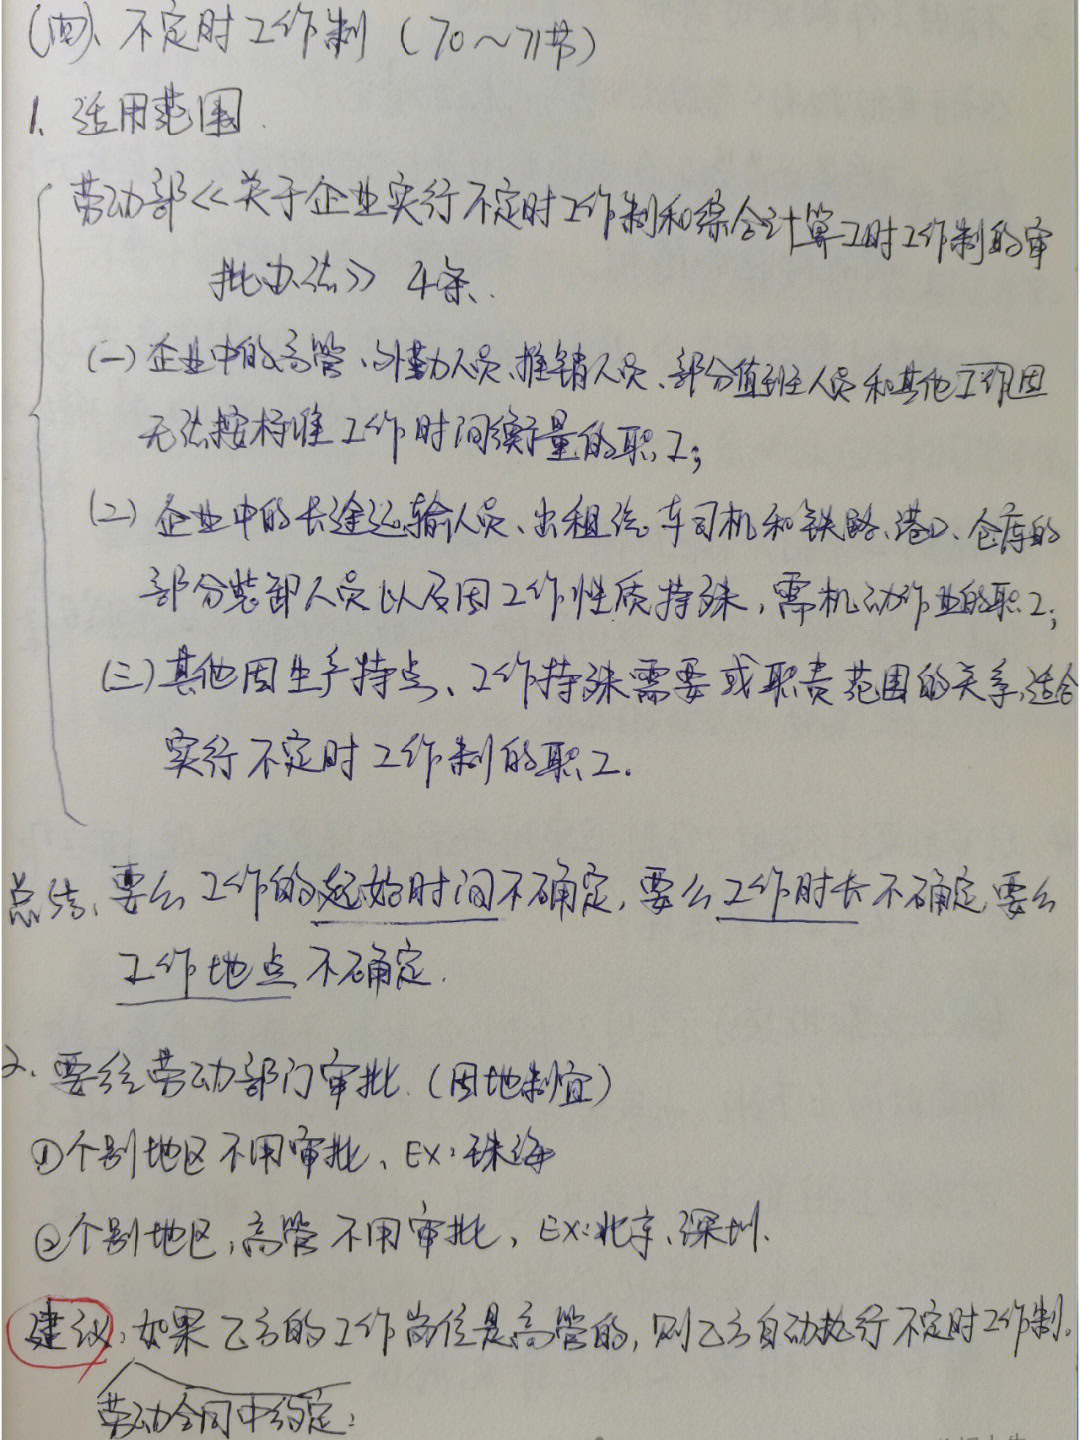 (四)、不定时工作制（70～71节）
1、适用范围.
劳动部《关于企业实行不定时工作制和综合计算工时工作制的审
批办法》 4条.
(一)企业中的高管、外勤人员、推销人员、部分值班人员和其他工作因
无法按标准工作时间衡量的职工;
(二)企业中的长途运输人员、出租汽车司机和铁路、港口、仓库的
部分装卸人员以及因工作性质特殊,需机动作业的职工;
(三)其他因生产特点、工作特殊需要或职责范围的关系,适合
实行不定时工作制的职工.
总结、要么工作的起始时间不确定,要么工作时长不确定,要么
工作地点不确定.
2、要经劳动部门审批.(因地制宜)
①个别地区不用审批、EX:珠海
②个别地区,高管不用审批,EX:北京、深圳.
建议:如果乙方的工作岗位是高管的,则乙方自动执行不定时工作制.
劳动合同中约定: